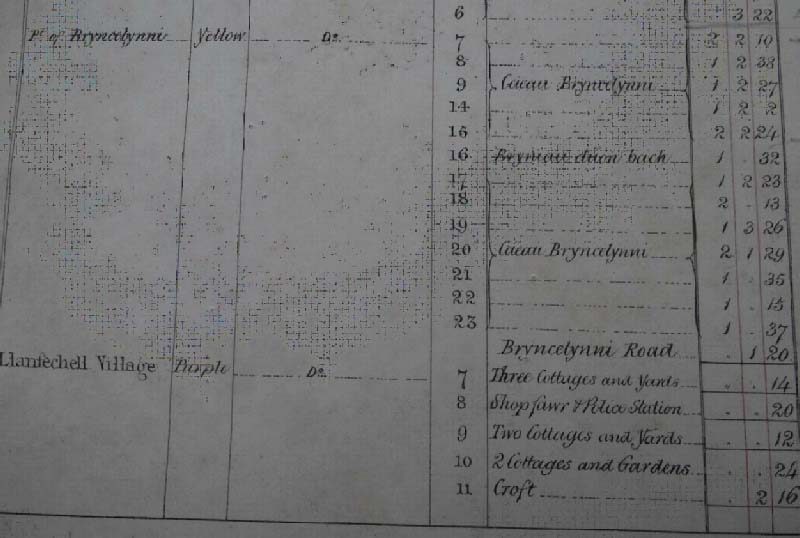 6 . 3 22
Pt. of Bryncelynni Yellow Do. 7 2 2 10
8 1 2 38
9 Caeau Bryncelynni 1 2 27
14 1 2 2
15 2 2 24
16 Bryniau duon bach 1 . 32
17 1 2 23
18 2 . 13
19 1 3 26
20 Caeau Bryncelynni 2 1 29
21 1 . 35
22 1 . 15
23 1 . 37
Bryncelynni Road . 1 20
Llanfechell Village Purple Do. 7 Three Cottages and Yards . . 14
8 Shop fawr & Police Station . . 20
9 Two Cottages and Yards . . 12
10 2 Cottages and Gardens . . 24
11 Croft . 2 16